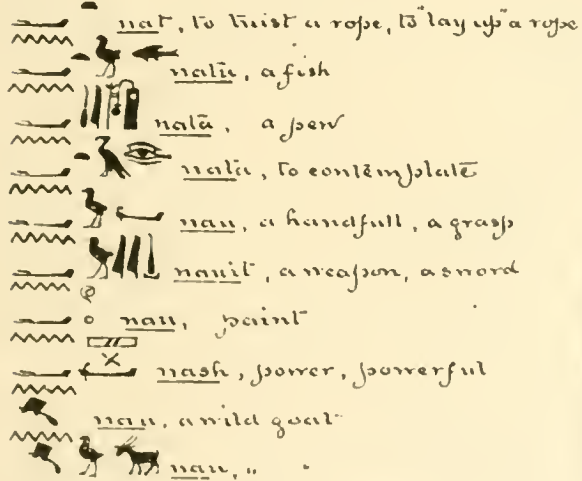 nat, to twist a rope, to "lay up" a rope
natu, a fish
natā, a pen
nata, to contemplate
nau, a handfull, a grasp
nauit, a weapon, a sword
nau, paint
nash, power, powerful
nau, a wild goat
nau, "